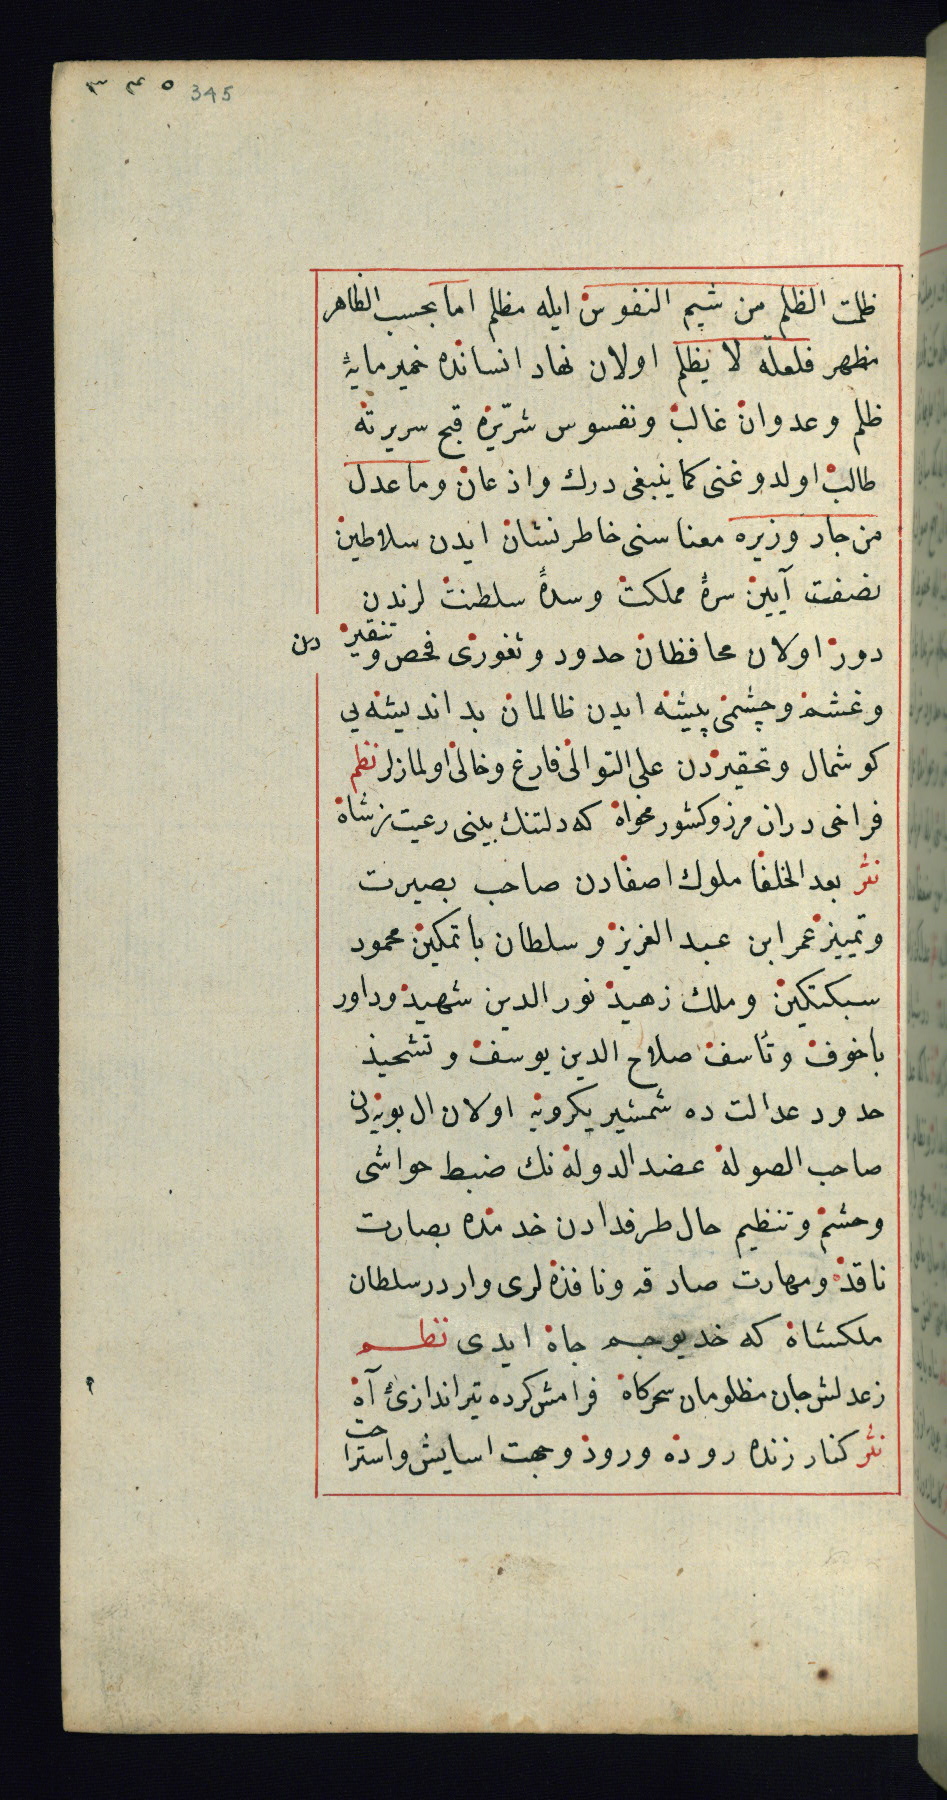 ۳۴۵ 345
ظلمت الظلم من شیم النفوس ایله مظلم اما بحسب الظاهر
مظهر فلعله لا یظلم اولان نهاد انسانده خمیرمایهٔ
ظلم و عدوان غالب و نفسوس شریره قبح سریرته
طالب اولدوغنی کما ینبغی درك و اذعان وما عدل
من جار وزیره معناسنی خاطرنشان ایدن سلاطین
نصفت آیین سرهٔ مملکت و سدهٔ سلطنت لرندن
دور اولان محافظان حدود و ثغوری فحص و تنقیر دن
و غشم و چشمی پیشه ایدن ظالمان بد اندیشه یی
کوشمال و تحقیردن علی التوالی فارغ و خالی اولمازلر نظم
فراخی دران مرز و کشور مخواه که دلتنك بینی رعیت ز شاه
نثر بعد الخلفا ملوك اصفادن صاحب بصیرت
و تمییز عمر ابن عبد العزیز و سلطان با تمکین محمود
سبکتکین و ملك زهید نور الدین شهید و داور
با خوف و تأسف صلاح الدین یوسف و تشحیذ
حدود عدالت ده شمشیر یکرویه اولان ال بویه دن
صاحب الصولة عضد الدولة نك ضبط حواشی
و حشم و تنظیم حال طرفدادن خدمتده بصارت
ناقذه و مهارت صادقه و نافذه لری واردر سلطان
ملکشاه که خدیو جم جاه ایدی نظم
ز عدلش جان مظلومان سحرکاه فرامش کرده تیراندازیٔ آه
نثر کنار زنده روده ورود و جهت اسایش و استراحت